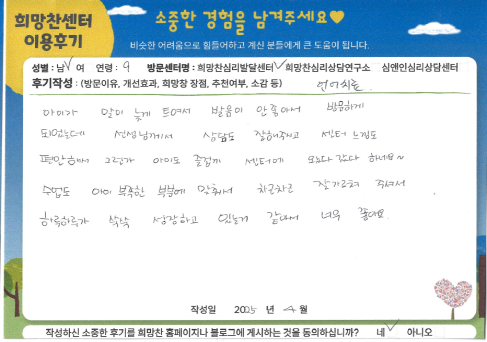 희망찬센터
이용후기
소중한 경험을 남겨주세요
비슷한 어려움으로 힘들어하고 계신 분들에게 큰 도움이 됩니다.
성별 : 남 여 연령 : 9 방문센터명 : 희망찬심리발달센터 희망찬심리상담연구소 심앤인심리상담센터
후기작성 : (방문이유, 개선효과, 희망창 장점, 추천여부, 소감 등) 언어치료
아이가 말이 늦게 트여서 발음이 안좋아서 방문하게
되었는데 선생님께서 상담도 잘해주시고 센터 느낌도
편안해서 그런가 아이도 즐겁게 센터에 오는다 갔다 하네요~
수업도 아이 부족한 부분에 맞춰서 차근차근 잘가르쳐 주셔서
하루하루가 쑥쑥 성장하고 있는거 같아서 너무 좋아요
작성일 2025 년 4 월
작성하신 소중한 후기를 희망찬 홈페이지나 블로그에 게시하는 것을 동의하십니까? 네 아니오